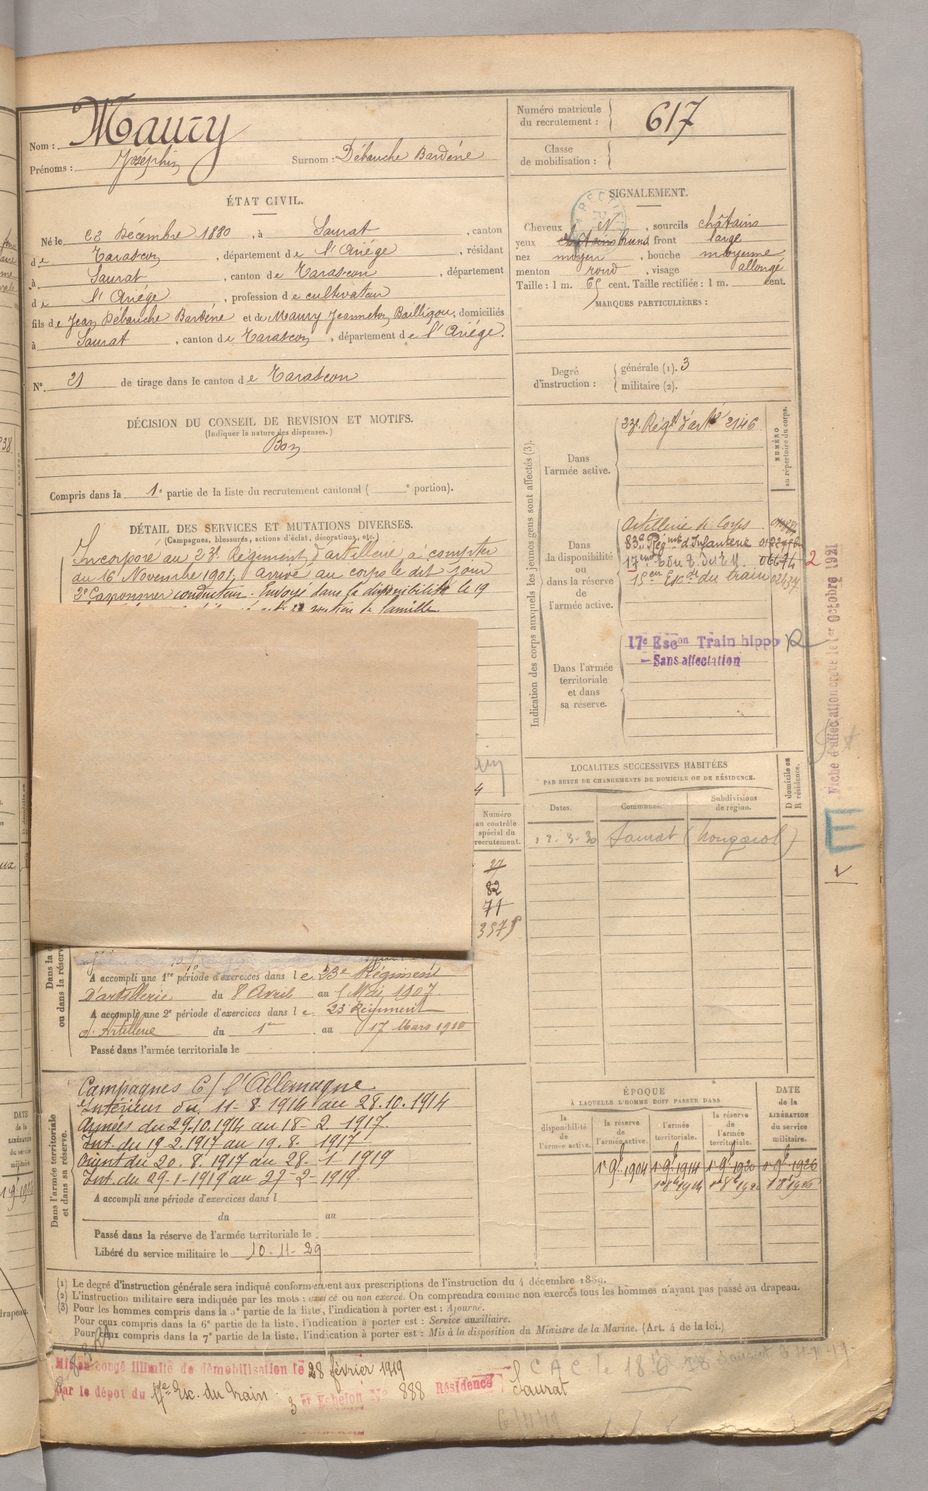 Nom : Maury
Prénoms : Joséphin Surnom : Débauche Bardéné
Numéro matricule
du recrutement : 617
Classe
de mobilisation :
ÉTAT CIVIL.
Né le 23 Décembre 1880, à Saurat, canton
de Tarascon, département de l'Ariège, résidant
à Saurat, canton de Tarascon, département
de l'Ariège, profession de cultivateur
fils de Jean Débauche Bardéné et de Maury Jeanneton Bailligou, domiciliés
à Saurat, canton de Tarascon, département de l'Ariège.
N° 21 de tirage dans le canton de Tarascon
SIGNALEMENT.
Cheveux N, sourcils châtains
yeux châtains bruns front large
nez moyen, bouche moyenne
menton rond, visage allongé
Taille : 1 m. 65 cent. Taille rectifiée : 1 m. cent.
MARQUES PARTICULIÈRES :
Degré
d'instruction :
générale (1). 3
militaire (2).
DÉCISION DU CONSEIL DE REVISION ET MOTIFS.
(Indiquer la nature des dispenses.)
Bon
Compris dans la 1e partie de la liste du recrutement cantonal ( e portion).
DÉTAIL DES SERVICES ET MUTATIONS DIVERSES.
(Campagnes, blessures, actions d'éclat, décorations, etc.)
Incorporé au 23e Régiment d'artillerie à compter
du 16 Novembre 1901, arrivé au corps le dit jour
2e Canonnier conducteur. Envoyé dans la disponibilité le 19
soutien de famille
Indication des corps auxquels les jeunes gens sont affectés (3).
NUMÉRO
au répertoire du corps.
Dans
l'armée active.
23e Régt d'artie 2146
Dans
la disponibilité
ou
dans la réserve
de
l'armée active.
Artillerie de Corps
83e Régiment d'Infanterie
17me 06674 2
15eme Escon du train 02637
Dans l'armée
territoriale
et dans
sa réserve.
17e Escon Train hippo R
Sans affectation
Fiche d'affectation créée le 1er Octobre 1921
E
LOCALITÉS SUCCESSIVES HABITÉES
PAR SUITE DE CHANGEMENTS DE DOMICILE OU DE RÉSIDENCE.
Dates. Communes. Subdivisions
de région. D domicile ou
R résidence.
12-3-30 Saurat
Numéro
au contrôle
spécial du
recrutement.
27
82
71
3578
A accompli une 1re période d'exercices dans le 23e Régiment
d'artillerie du 8 Avril au 5 Mai 1907.
A accompli une 2e période d'exercices dans le 23 Régiment
d'Artillerie du 1er au 17 Mars 1910
Passé dans l'armée territoriale le
Dans l'armée territoriale
et dans sa réserve.
Campagnes C/ l'Allemagne
Intérieur du 11-8-1914 au 28.10.1914
Armées du 29.10.1914 au 18-2-1917.
Int. du 19.2.1917 au 19.8-1917
Orient du 20.8.1917 au 28-1-1919
Int. du 29-1-1919 au 27-2-1919.
A accompli une période d'exercices dans l
du au
Passé dans la réserve de l'armée territoriale le
Libéré du service militaire le 10-11-29
ÉPOQUE
À LAQUELLE L'HOMME DOIT PASSER DANS
DATE
de la
LIBÉRATION
du service
militaire.
la
disponibilité
de
l'armée active.
la réserve
de
l'armée active.
l'armée
territoriale.
la réserve
de
l'armée
territoriale.
1er 9bre 1904 1er 9bre 1914 1er 9bre 1920 1er 9bre 1926
(1) Le degré d'instruction générale sera indiqué conformément aux prescriptions de l'instruction du 4 décembre 1889.
(2) L'instruction militaire sera indiquée par les mots : exercé ou non exercé. On comprendra comme non exercés tous les hommes n'ayant pas passé au drapeau.
(3) Pour les hommes compris dans la 5e partie de la liste, l'indication à porter est : Ajourné.
Pour ceux compris dans la 6e partie de la liste, l'indication à porter est : Service auxiliaire.
Pour ceux compris dans la 7e partie de la liste, l'indication à porter est : Mis à la disposition du Ministre de la Marine. (Art. 4 de la loi.)
Mis en congé illimité de démobilisation le 28 février 1919
par le dépôt du 17e Esc. du Train 3er Echelon N° 888 Résidence Saurat